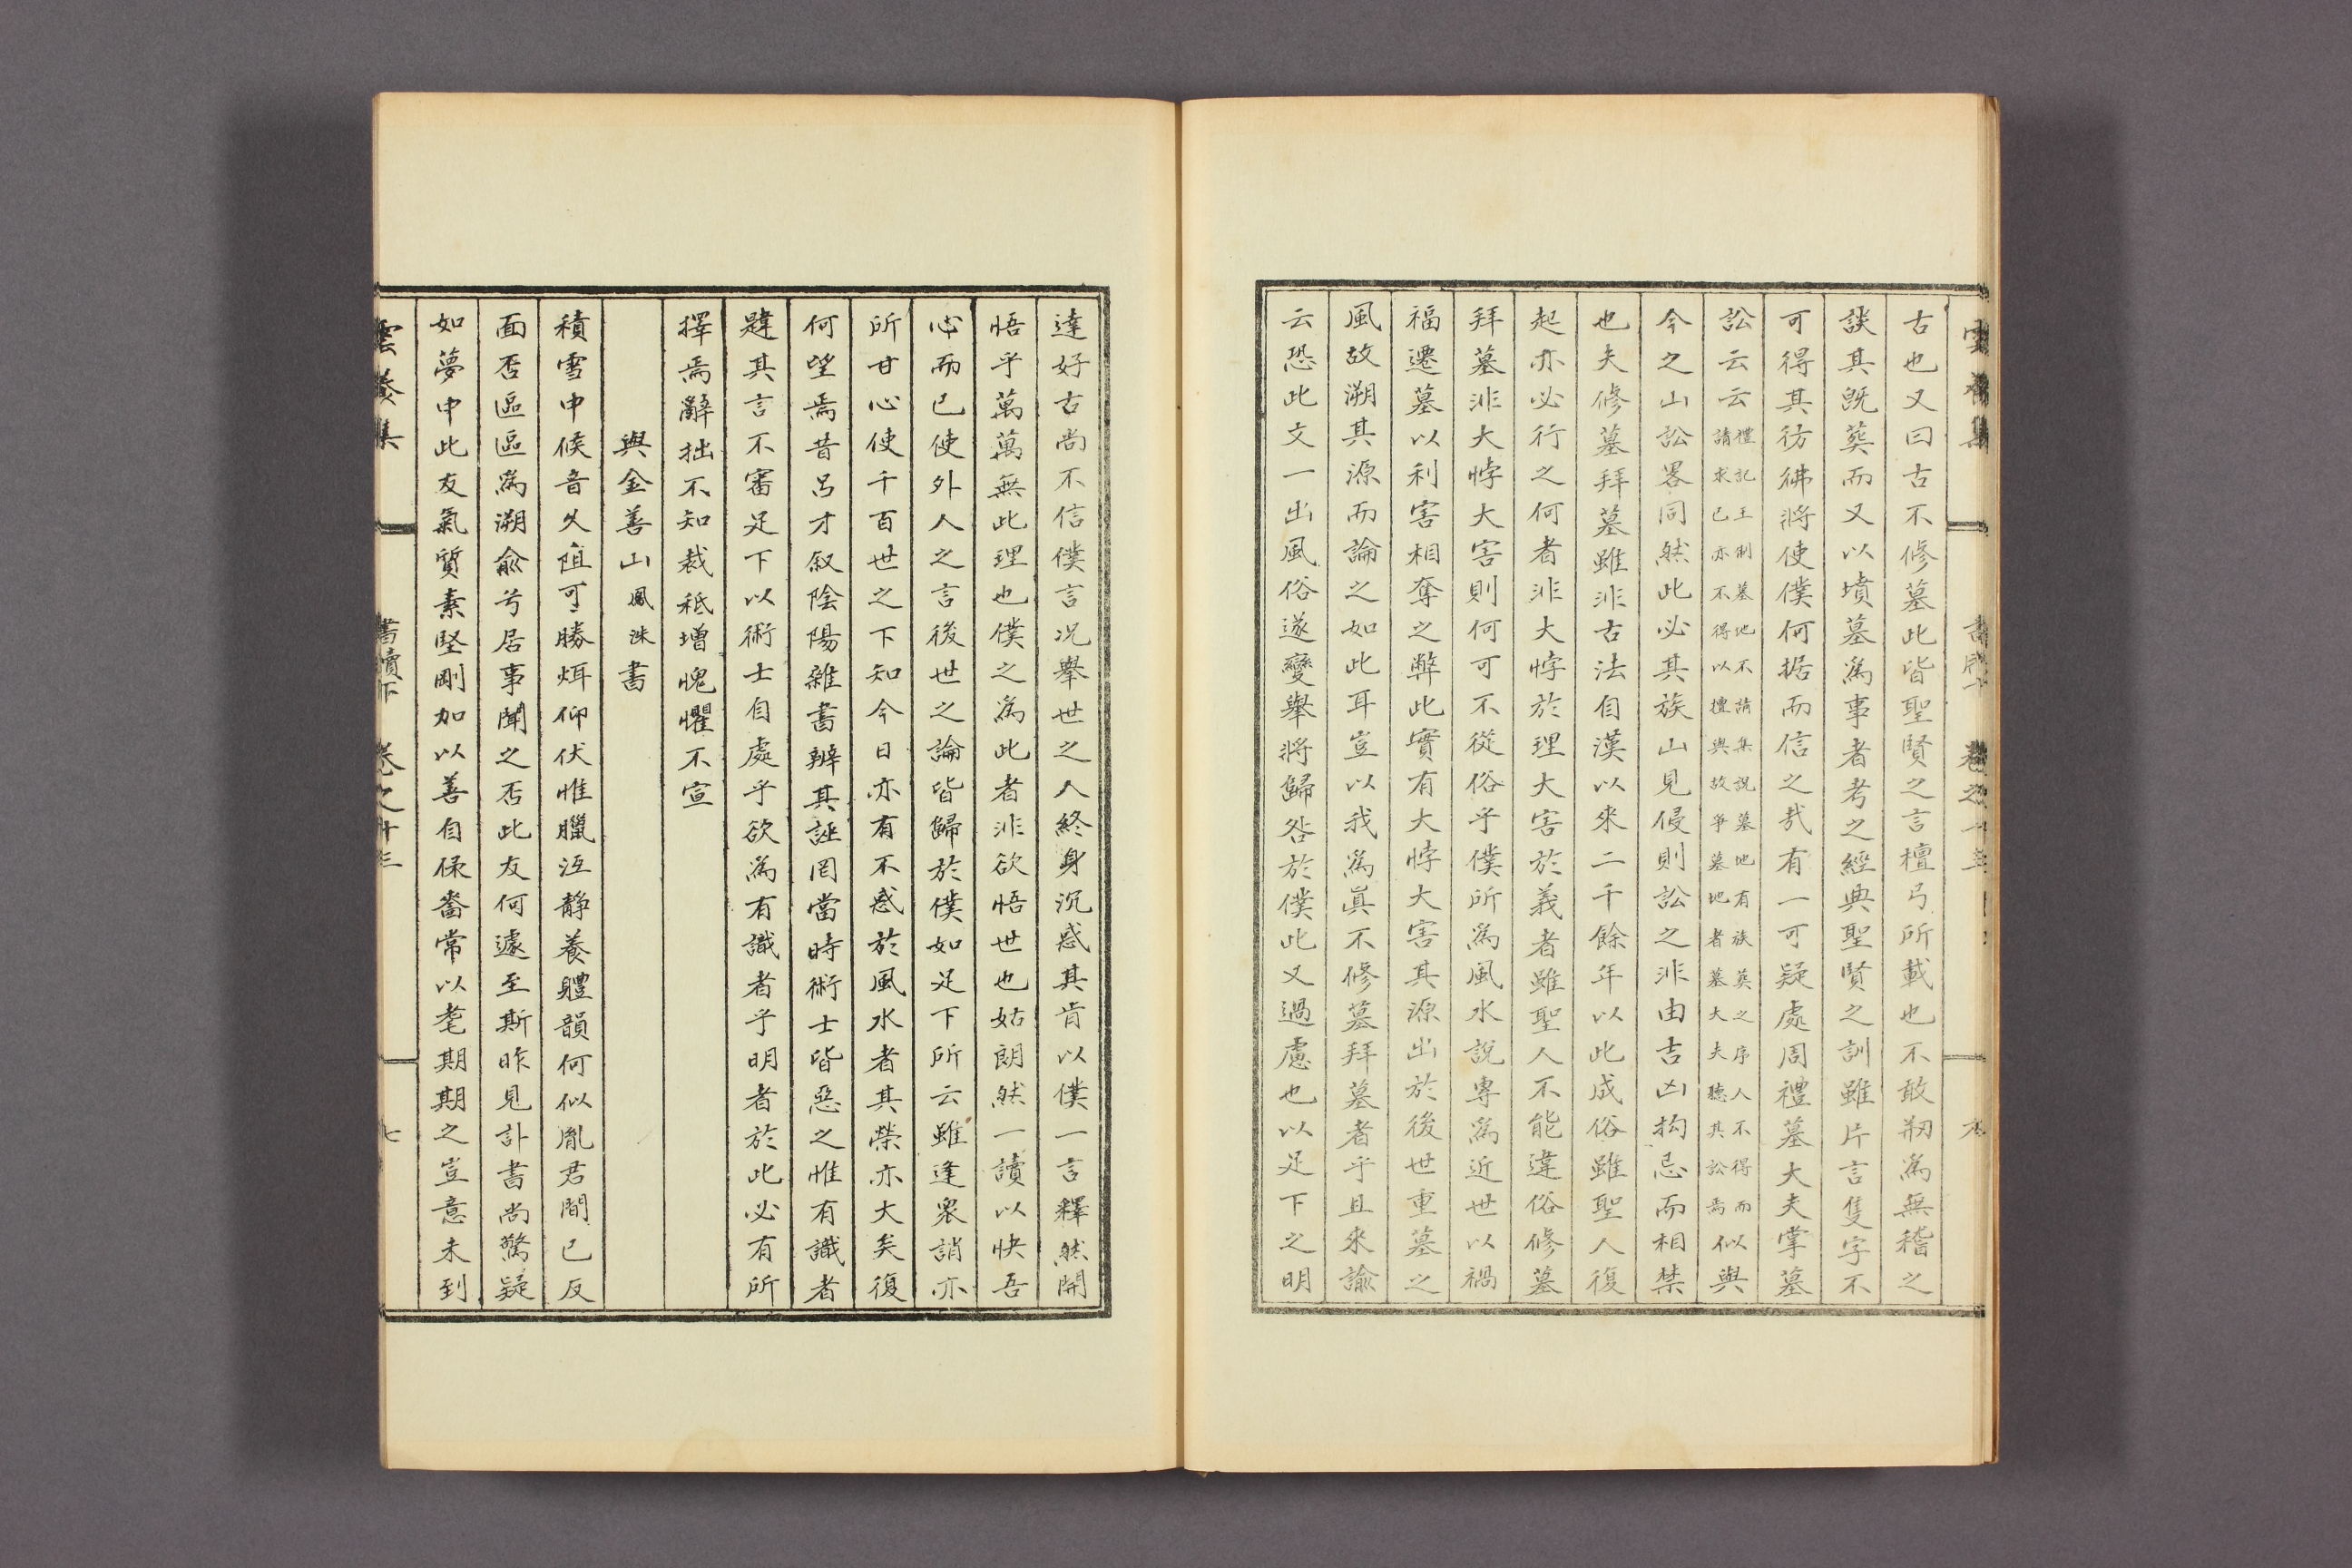 古也又曰古不修墓此皆聖賢之言檀弓所載也不敢剏為無稽之
談其旣葬而又以墳墓為事者考之經典聖賢之訓雖片言隻字不
可得其彷彿將使僕何据而信之哉有一可疑處周禮墓大夫掌墓
訟云云禮記王制墓地不請集說墓地有族葬之序人不得而請求己亦不得以擅與故爭墓地者墓大夫聽其訟焉似與
今之山訟畧同然此必其族山見侵則訟之非由吉凶拘忌而相禁
也夫修墓拜墓雖非古法自漢以來二千餘年以此成俗雖聖人復
起亦必行之何者非大悖於理大害於義者雖聖人不能違俗修墓
拜墓非大悖大害則何可不從俗乎僕所為風水說專為近世以禍
福遷墓以利害相奪之弊此實有大悖大害其源出於後世重墓之
風故溯其源而論之如此耳豈以我為眞不修墓拜墓者乎且來諭
云恐此文一出風俗遂變舉將歸咎於僕此又過慮也以足下之明
達好古尚不信僕言况舉世之人終身沉惑其肯以僕一言釋然開
悟乎萬萬無此理也僕之為此者非欲悟世也姑朗然一讀以快吾
心而已使外人之言後世之論皆歸於僕如足下所云雖逢衆誚亦
所甘心使千百世之下知今日亦有不惑於風水者其榮亦大矣復
何望焉昔呂才叙陰陽雜書辨其誣罔當時術士皆惡之惟有識者
韙其言不審足下以術士自處乎欲為有識者乎明者於此必有所
擇焉辭拙不知裁秪增愧懼不宣
與金善山鳳洙書
積雪中候音久阻可勝烱仰伏惟臘沍靜養軆韻何似胤君間已反
面否區區為溯兪兮居事聞之否此友何遽至斯昨見訃書尚驚疑
如夢中此友氣質素堅剛加以善自保嗇常以耄期期之豈意未到
雲養集 書牘下 卷之十三 七